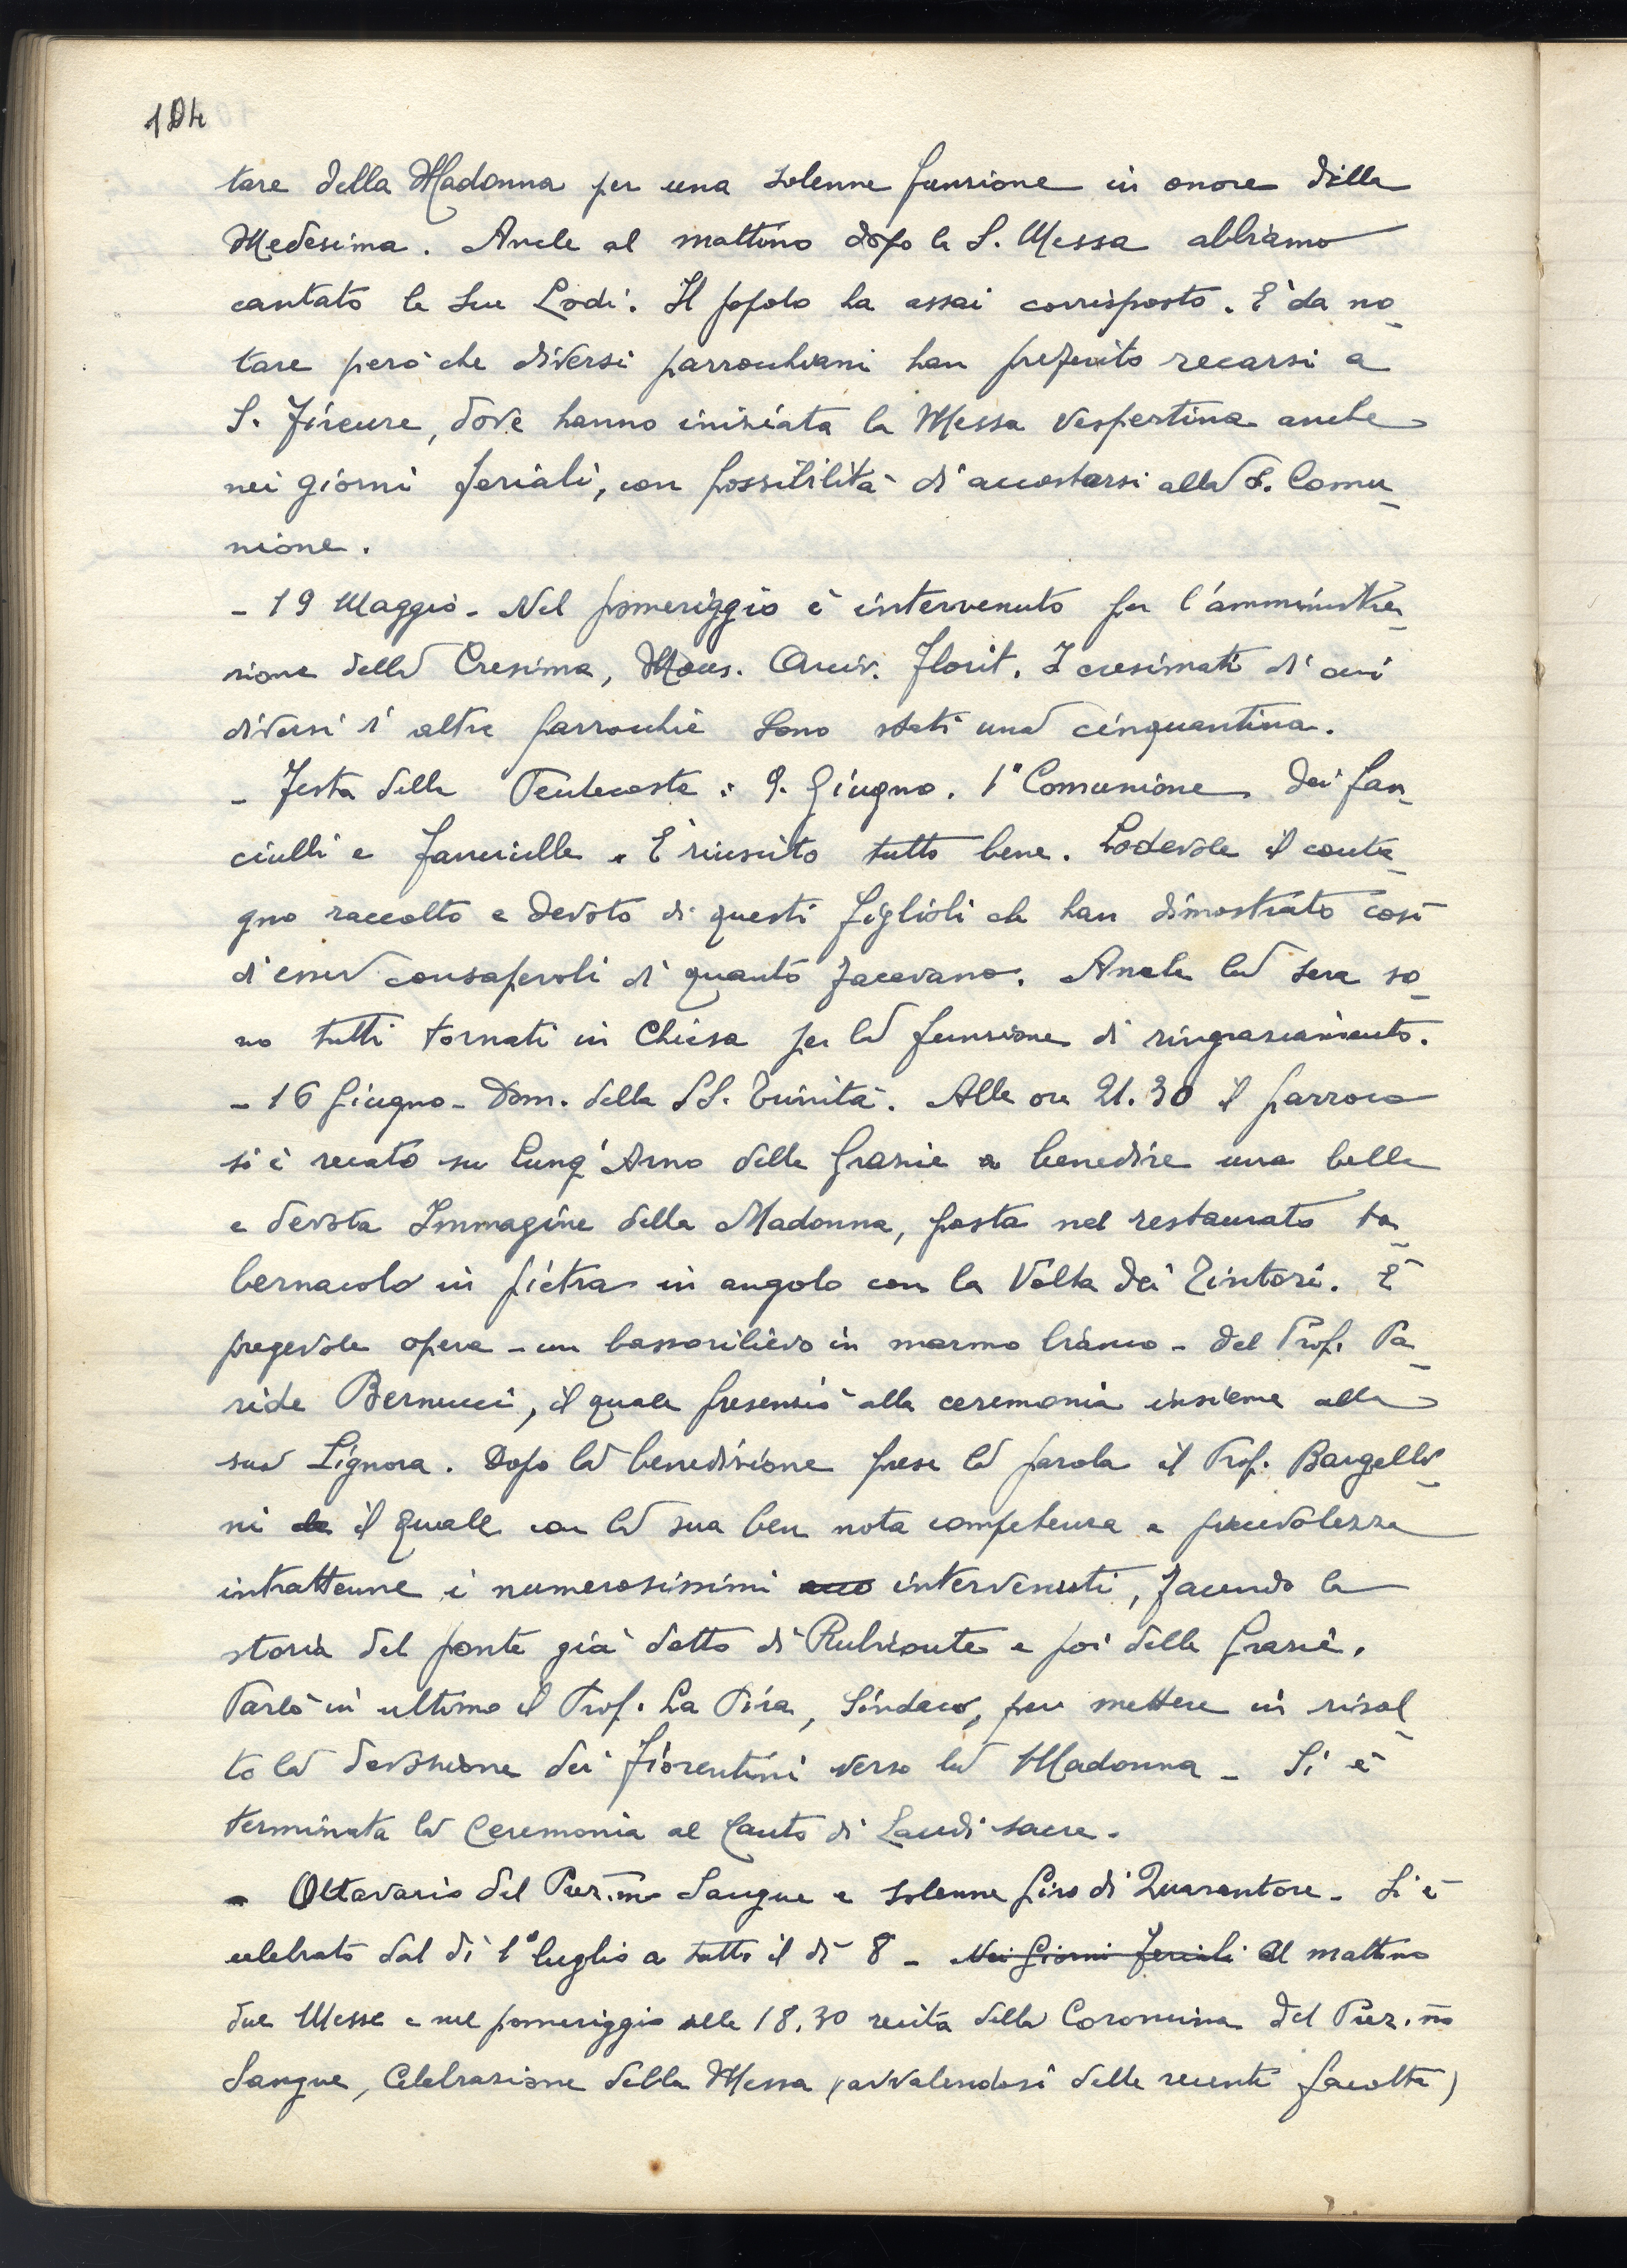 104
tare della Madonna per una solenne funzione in onore della
Medesima. Anche al mattino dopo la S. Messa abbiamo
cantato le sue Lodi. Il popolo ha assai corrisposto. È da no-
tare però che diversi parrocchiani han preferito recarsi a
S. Firenze, dove hanno iniziata la Messa Vespertina anche
nei giorni feriali, con possibilità di accostarsi alla S. Comu-
nione.
- 19 Maggio - Nel pomeriggio è intervenuto per l'amministra-
zione della Cresima, Mons. Arciv. Florit. I cresimati di cui
diversi di altre parrocchie sono stati una cinquantina.
- Festa della Pentecoste: 9. Giugno. 1ª Comunione dei fan-
ciulli e fanciulle. È riuscito tutto bene. Lodevole il conte-
gno raccolto e devoto di questi figlioli che han dimostrato così
di esser consapevoli di quanto facevano. Anche la sera so-
no tutti tornati in Chiesa per la funzione di ringraziamento.
- 16 Giugno - Dom. della SS. Trinità. Alle ore 21.30 il parroco
si è recato su Lung'Arno delle Grazie a benedire una bella
e devota Immagine della Madonna, posta nel restaurato ta-
bernacolo in pietra in angolo con la Volta dei Tintori. È
pregevole opera - un bassorilievo in marmo bianco - del Prof. Pa-
ride Bernucci, il quale presenziò alla ceremonia insieme alla
sua Signora. Dopo la benedizione prese la parola il Prof. Bargelli-
ni il quale con la sua ben nota competenza e piacevolezza
intrattenne i numerosissimi intervenuti, facendo la
storia del ponte già detto di Rubiconte e poi delle Grazie.
Parlò in ultimo il Prof. La Pira, Sindaco, per mettere in risal-
to la devozione dei fiorentini verso la Madonna - Si è
terminata la Ceremonia al Canto di Laudi sacre.
- Ottavario del Prez.mo Sangue e solenne Giro di Quarantore - Si è
celebrato dal dì 1° luglio a tutto il dì 8 - Nei Giorni Feriali Al mattino
due Messe e nel pomeriggio alle 18.30 recita della Coroncina del Prez.mo
Sangue, Celebrazione della Messa (avvalendosi delle recenti facoltà)